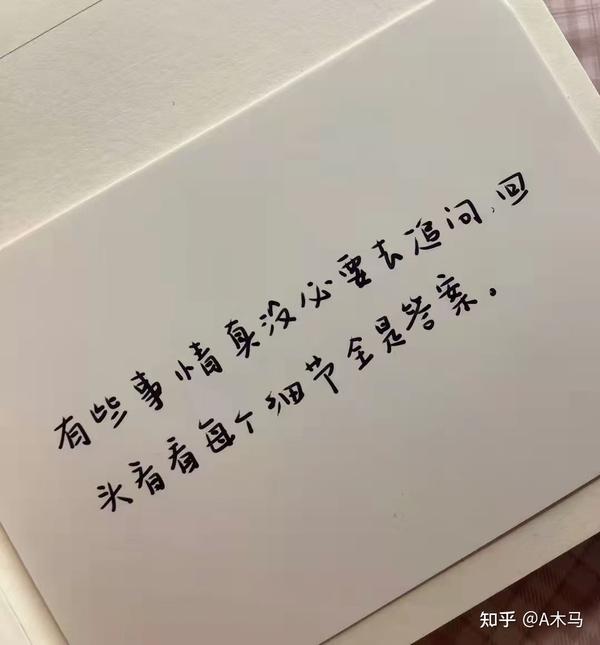 有些事情真没必要去追问,回
头看看每个细节全是答案。
知乎 @A木马